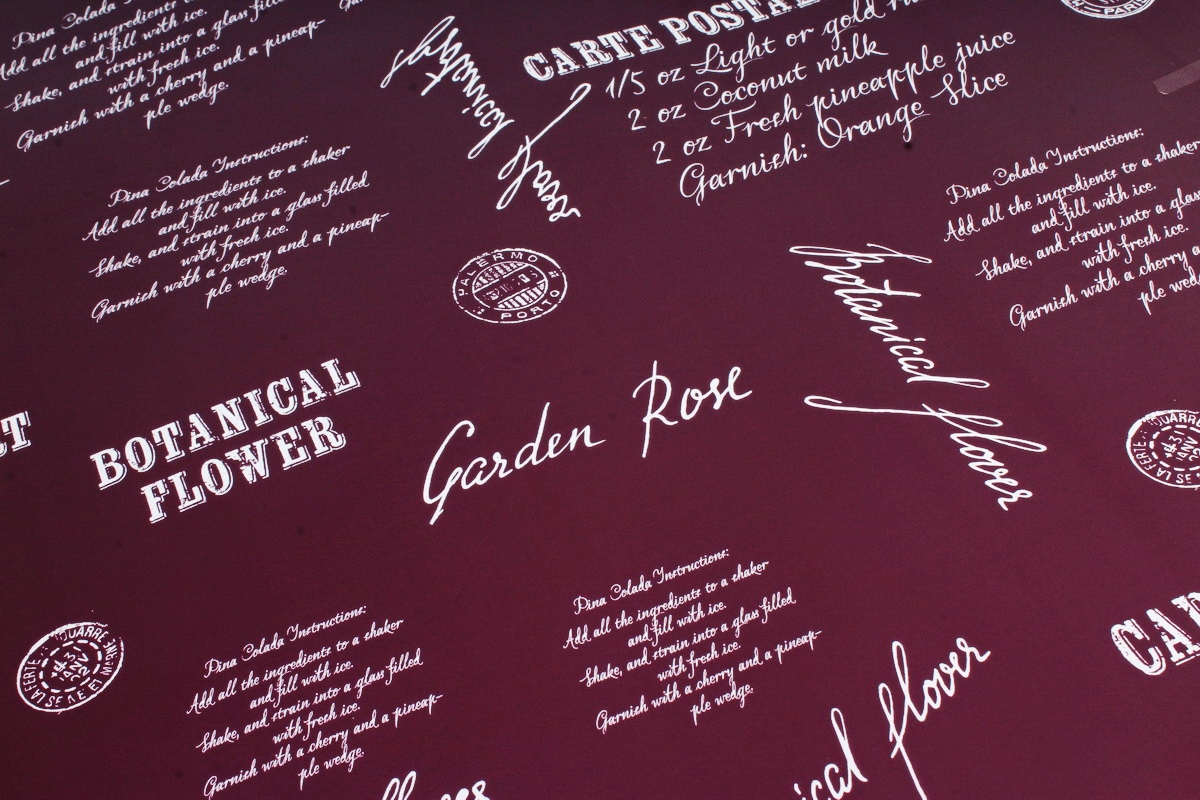 Pina Colada
Add all the ingredients to a
and fill with ice.
Shake, and strain into a glass filled
with fresh ice.
Garnish with a cherry and a pineap-
ple wedge.
CARTE POSTA
1/5 oz Light or gold
2 oz Coconut milk
2 oz Fresh pineapple juice
Garnish: Orange Slice
PARIS
Pina Colada Instructions:
Add all the ingredients to a shaker
and fill with ice.
Shake, and strain into a glass filled
with fresh ice.
Garnish with a cherry and a pineap-
ple wedge.
Pina Colada Instructions:
Add all the ingredients to a shaker
and fill with ice.
Shake, and strain into a
with fresh ice.
Garnish with a cherry
ple
PALERMO
PORTO
Botanical flover
BOTANICAL
FLOWER
Garden Rose
LA FERTE
JANV
Pina Colada Instructions:
Add all the ingredients to a shaker
and fill with ice.
Shake, and strain into a glass filled
with fresh ice.
Garnish with a cherry and a pineap-
ple wedge.
Pina Colada Instructions:
Add all the ingredients to a shaker
and fill with ice.
Shake, and strain into a glass filled
with fresh ice.
Garnish with a cherry and a pineap-
ple wedge.
LA FERTE
JANV
flover
CAR